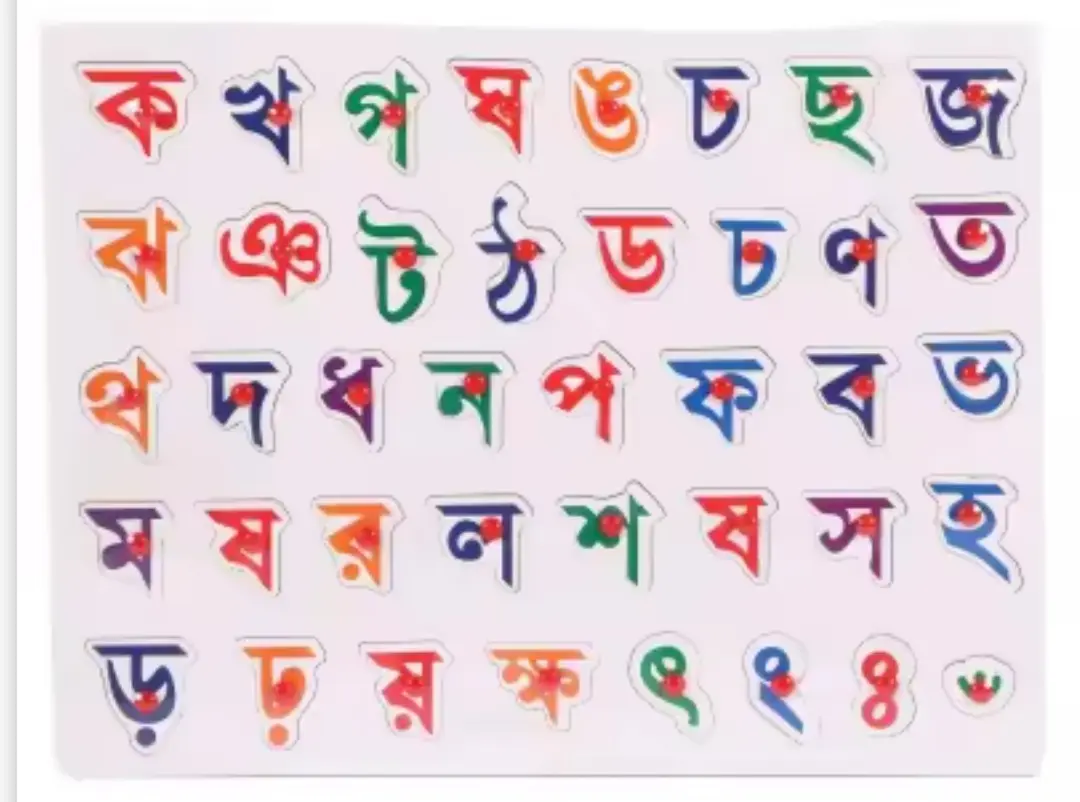 ক খ গ ঘ ঙ চ ছ জ
ঝ ঞ ট ঠ ড ঢ ণ ত
থ দ ধ ন প ফ ব ভ
ম ষ র ল শ ষ স হ
ড় ঢ় য় ক্ষ ৎ ং ঃ ঁ